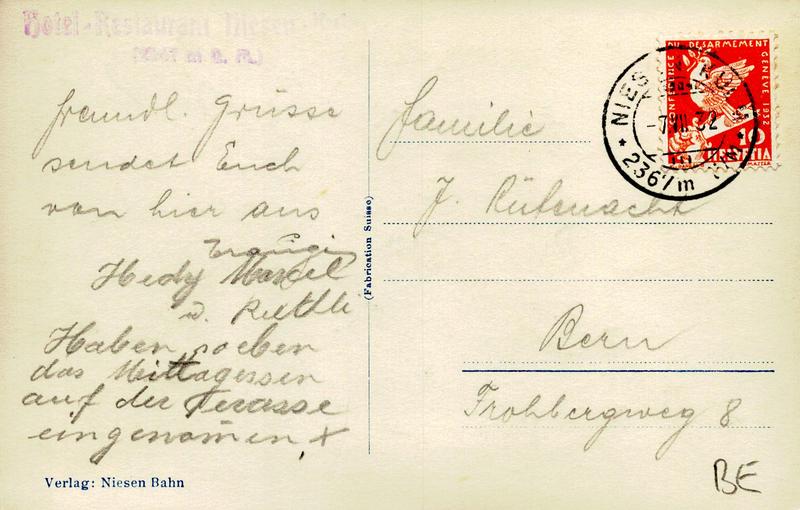 Hotel-Restaurant Niesen-Kulm
freundl. Grüsse
sendet Euch
von hier aus
Hedy Marcel
u. Ruthli
Haben soeben
das Mittagessen
auf der Terasse
eingenommen
Verlag: Niesen Bahn
(Fabrication Suisse)
CONFERENCE DU DESARMEMENT GENEVE 1932
10
HELVETIA
NIESEN KULM
-7.VII.32
2367 m
Familie
J. Rüfenacht
Bern
Frohbergweg 8
BE